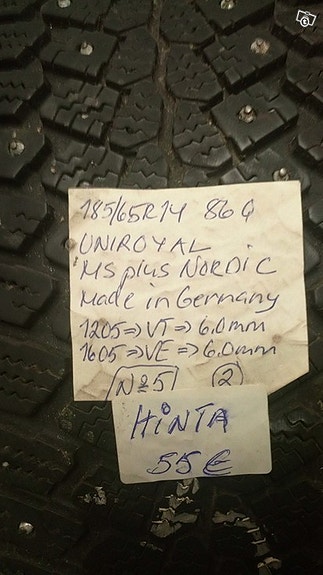 185/65R14 86Q
UNIROYAL
MS plus NORDIC
Made in Germany
1205⇒VT⇒6.0mm
1605⇒VE⇒6.0mm
№5 2
HINTA
55€